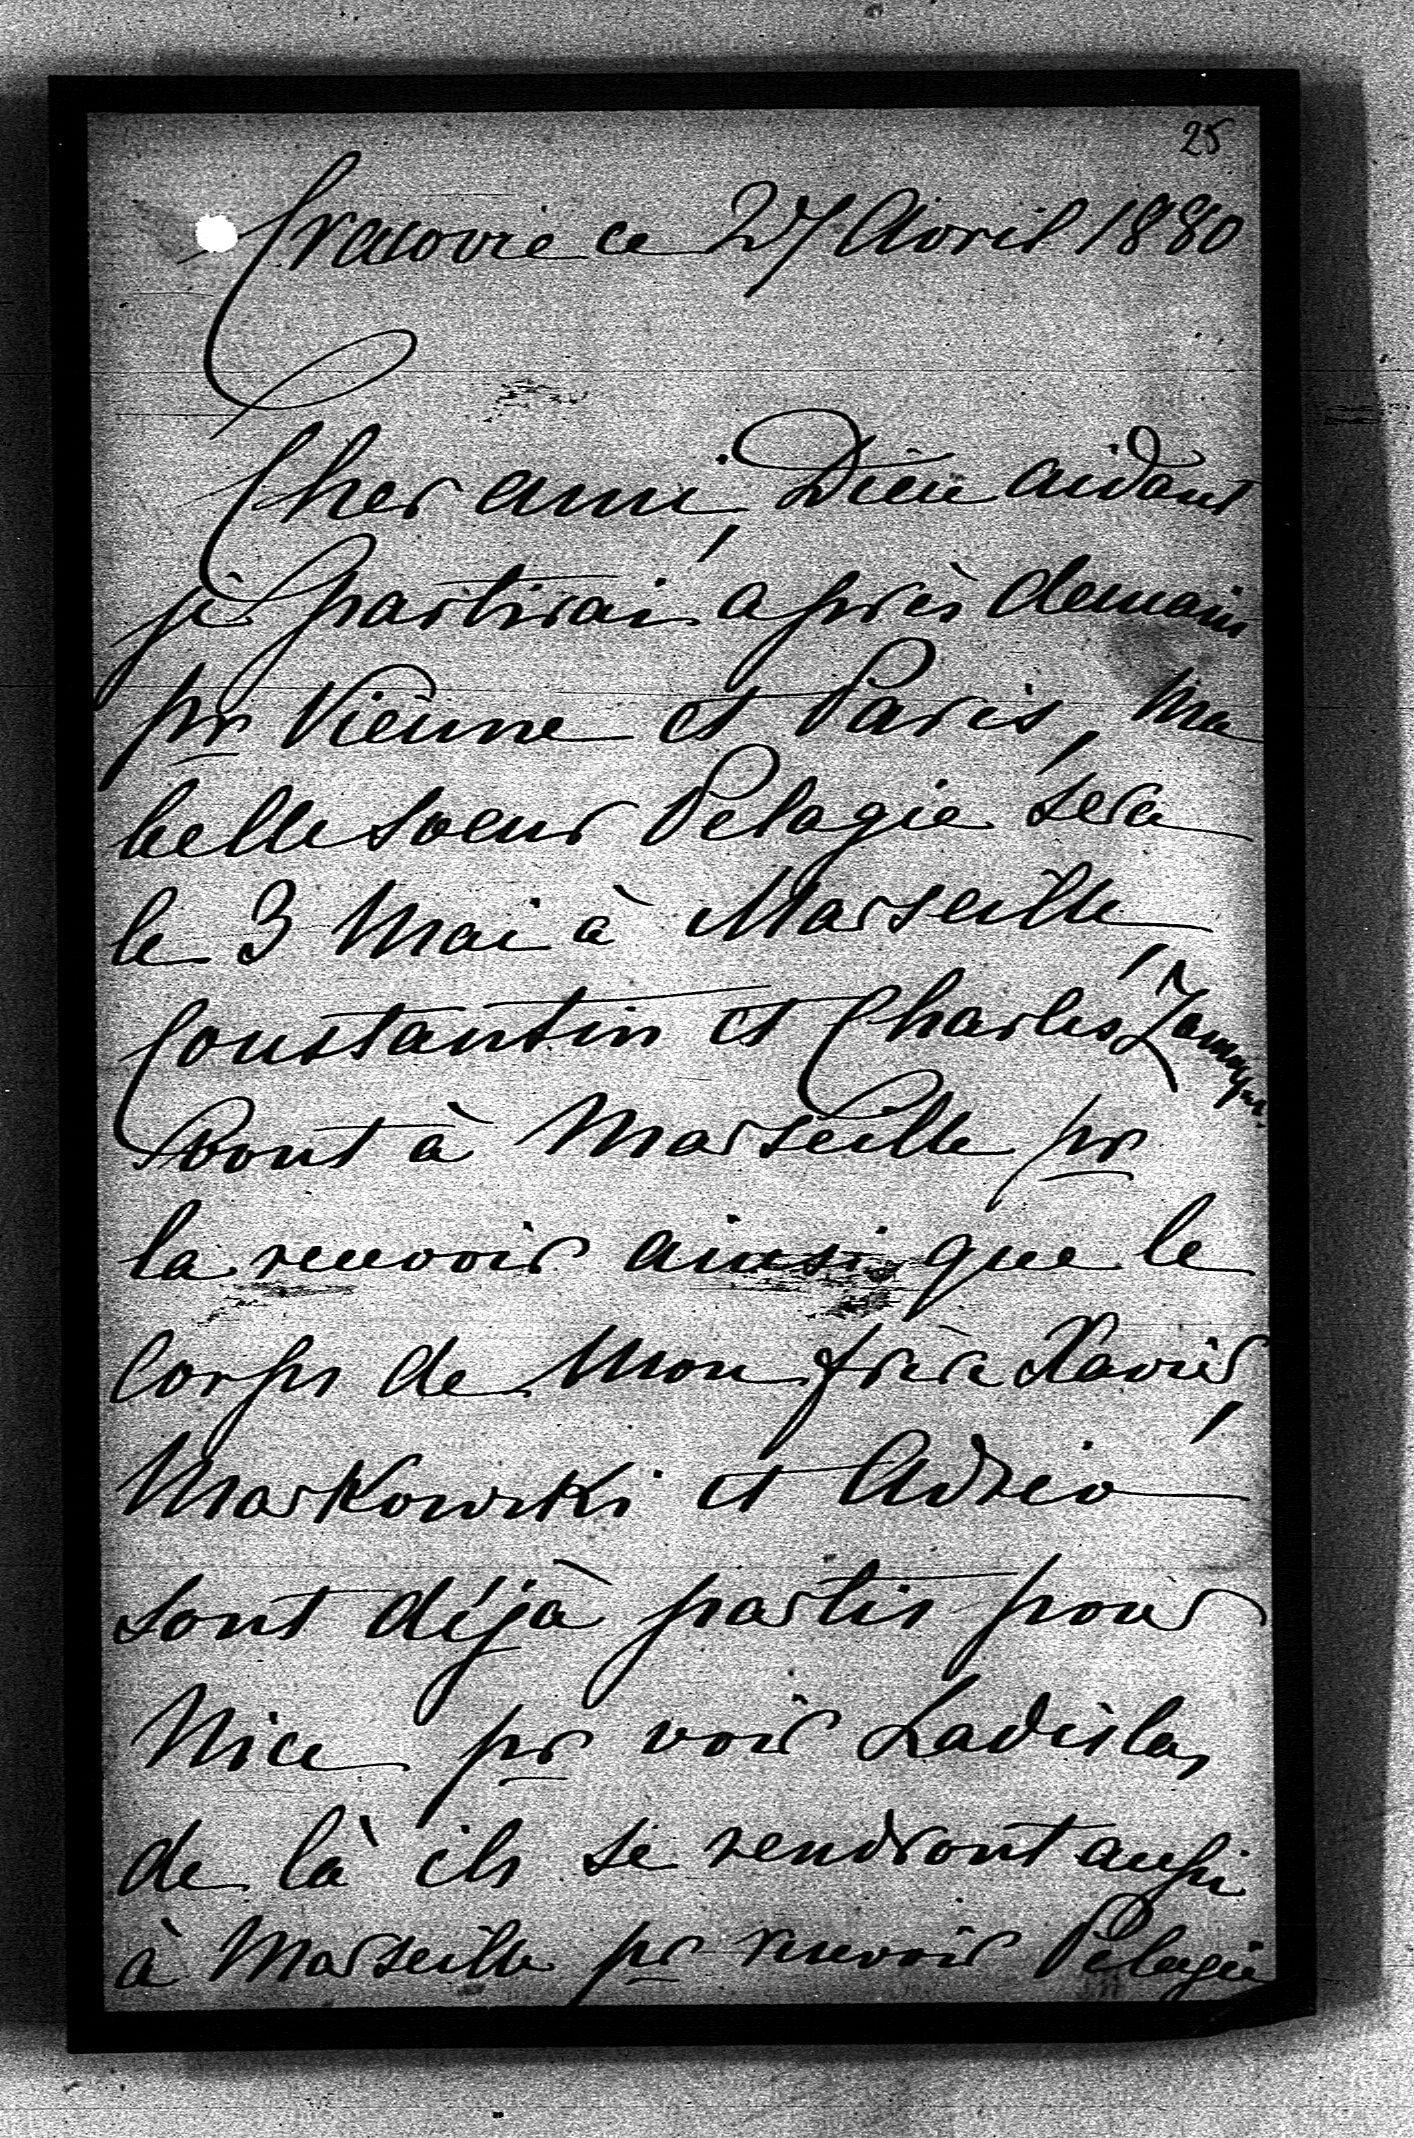 25
Cracovie ce 27 Avril 1880
Cher ami, Dieu aidant
je partirai après demain
pr Vienne et Paris, ma
belle soeur Pélagie sera
le 3 Mai à Marseille,
Constantin et Charles
vont à Marseille pr
la recevoir ainsi que le
Corps de Mon frère Xavier,
Markowski et
sont déjà partis pour
Nice pr voir Ladislas
de là ils se rendront aussi
à Marseille pr recevoir Pélagie